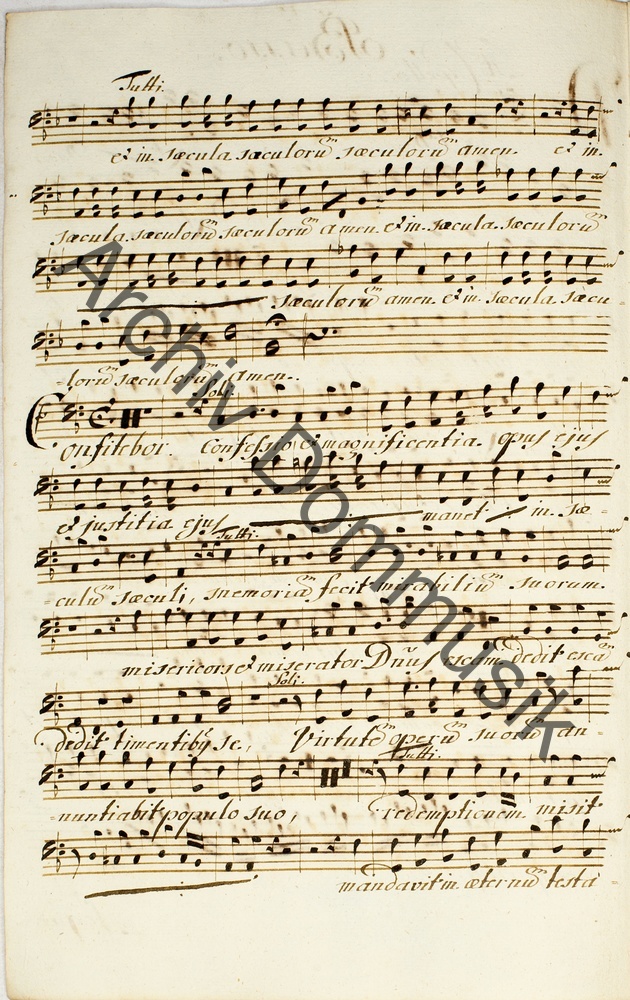 Tutti.
et in sæcula sæculorum̃ sæculorum̃ amen. et in
sæcula sæculorum̃ sæculorum̃ amen et in sæcula sæculorum̃
sæculorum̃ amen. et in sæcula sæcu
=lorum̃ sæculorum̃ amen.
Soli.
Confitebor. Confessio et magnificentia opus ejus
et justitia ejus manet in sæ=
Tutti.
=culum̃ sæculi, memoriam̃ fecit mirabilium̃ suorum.
misericors et miserator Dñus escam dedit escam̃
Soli.
dedit timentibus se, Virtutem̃ operum̃ suorum̃ an=
Tutti.
=nuntiabit populo suo, redemptionem misit
mandavit in æternum̃ testa=
Archiv Dommusik